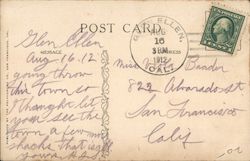 POST CARD
GLEN ELLEN
AUG
16
1912
CAL.
Glen Ellen
MESSAGE
Aug 16. 12
going throw
this town so
thought let
you see the
town a few
shacks that is all
Miss Bender
822 Alvarado St
San Francisco
Calif